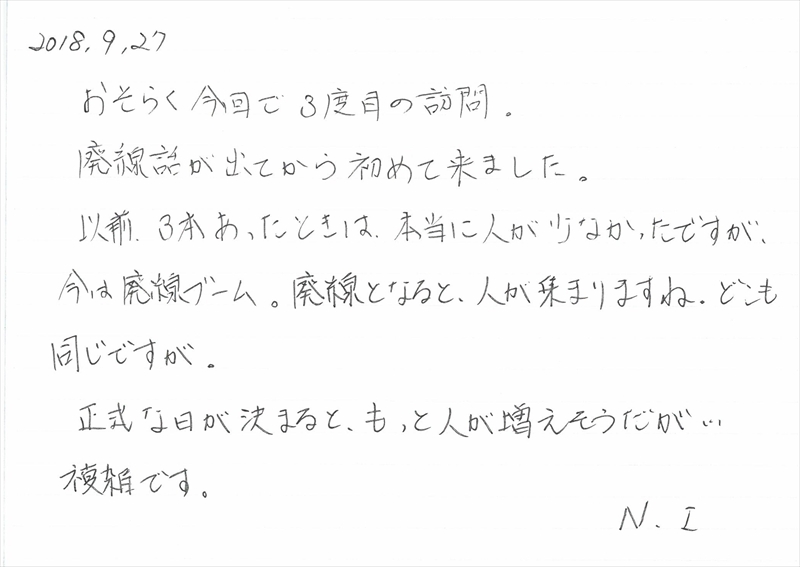 2018.9.27
おそらく今回で3度目の訪問。
廃線話が出てから初めて来ました。
以前、3本あったときは、本当に人が少なかったですが、
今は廃線ブーム。廃線となると、人が集まりますね。どこも
同じですが。
正式な日が決まると、もっと人が増えそうだが…
複雑です。
N.I